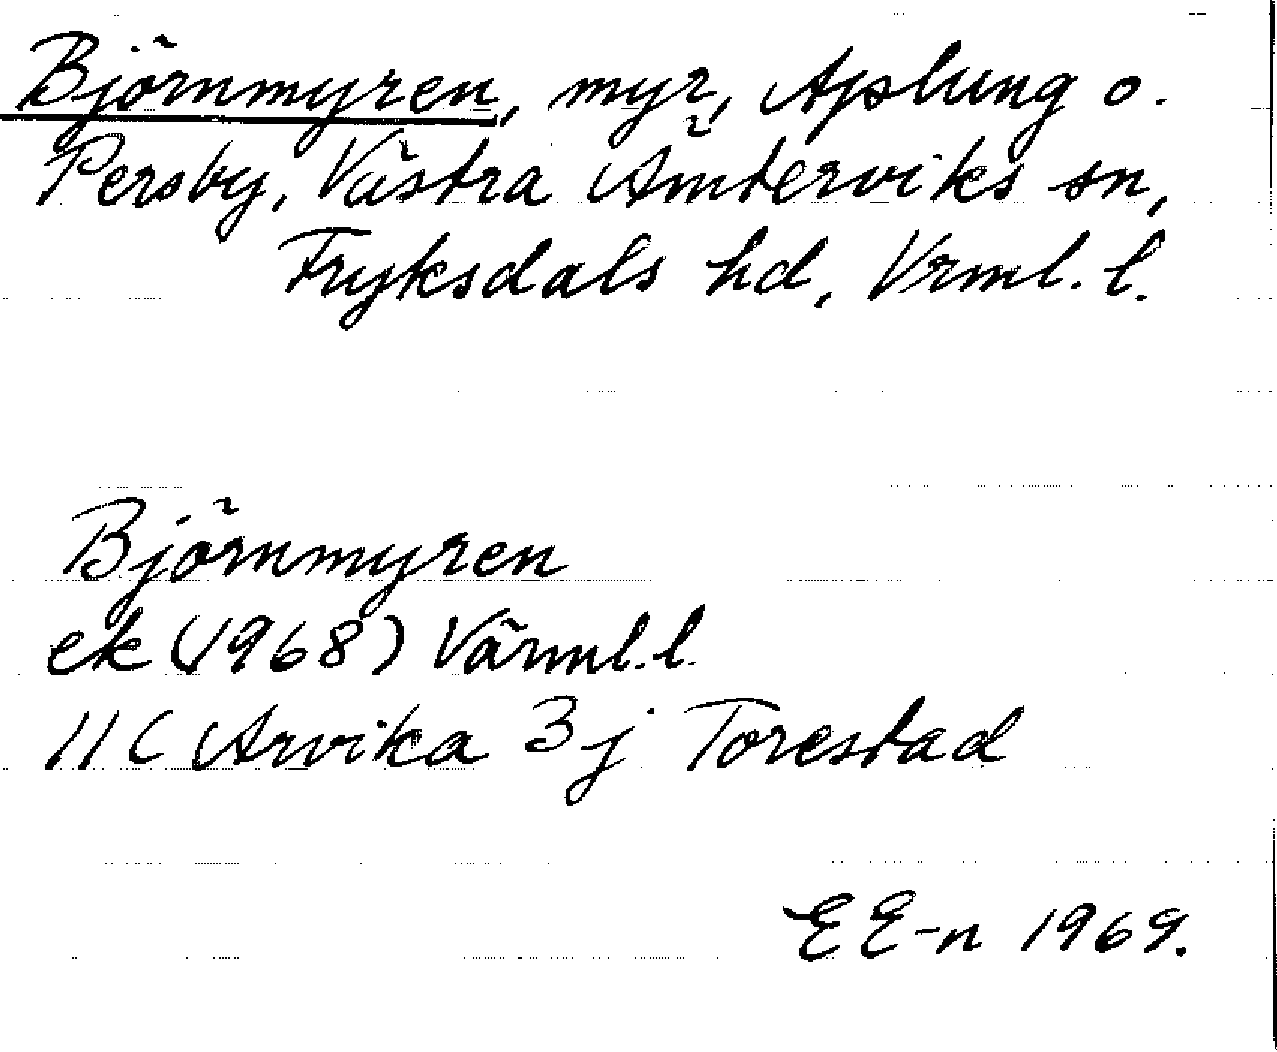 Björnmyren, myr, Aplung o.
Persby, Västra Ämterviks sn,
Fryksdals hd, Vrml. l.
Björnmyren
ek (1968) Värml. l.
11 C Arvika 3 j Torestad
EE-n 1969.